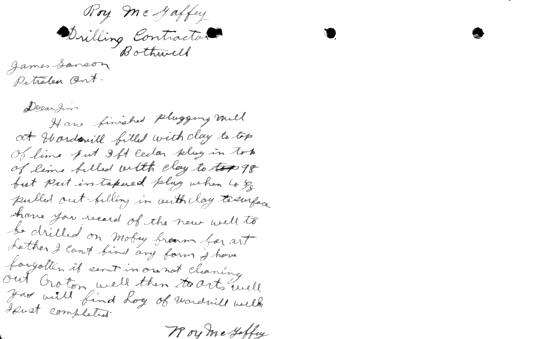 Roy McGaffey
Drilling Contractor
Bothwell
James Sanson
Petrolea Ont.
Dear Jim
Have finished plugging well
at Wardsvill filled with clay to top
of lime put 3 ft cedar plug in top
of lime filled with clay to top 98
feet put in tapered plug when
pulled out filling in with clay to surface
have you record of the new well to
be drilled on farm for art
I cant find any form I have
forgotten if sent in or not cleaning
out Croton well then to Arts well
you will find Log of Wardsvill well
I just completed
Roy McGaffey